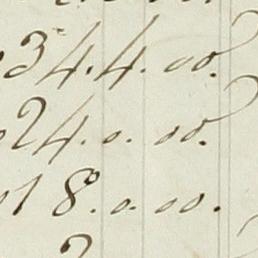 34.4.00.
24.0.00.
18.0.00.